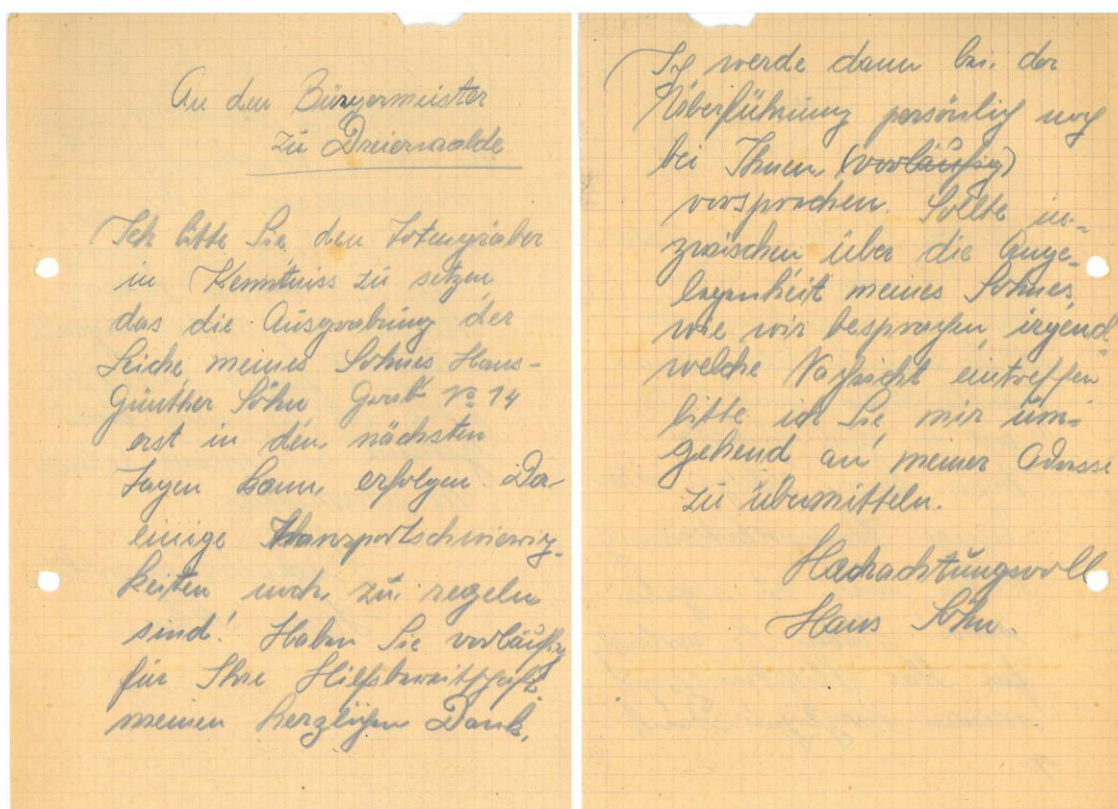 An den Bürgermeister
zu Dreierwalde
Ich bitte Sie, den Totengräber
in Kenntniss zu setzen,
das die Ausgrabung der
Leiche, meines Sohnes Hans-
Günther Söhn Grab No 14
erst in den nächsten
Tagen kann, erfolgen. Da
einige Transportschwierig-
keiten noch, zu regeln
sind! Haben Sie vorläufig
für Ihre Hilfsbereitschaft.
meinen herzlichen Dank,
Ich werde dann bei der
Überführung persönlich noch
bei Ihnen (vorläufig)
vorsprechen. Sollte in-
zwischen über die Ange-
legenheit meines Sohnes,
wie wir besprachen, irgend-
welche Nachricht eintreffen
bitte ich Sie, mir um-
gehend an meiner Adresse
zu übermitteln.
Hochachtungsvoll
Hans Söhn.